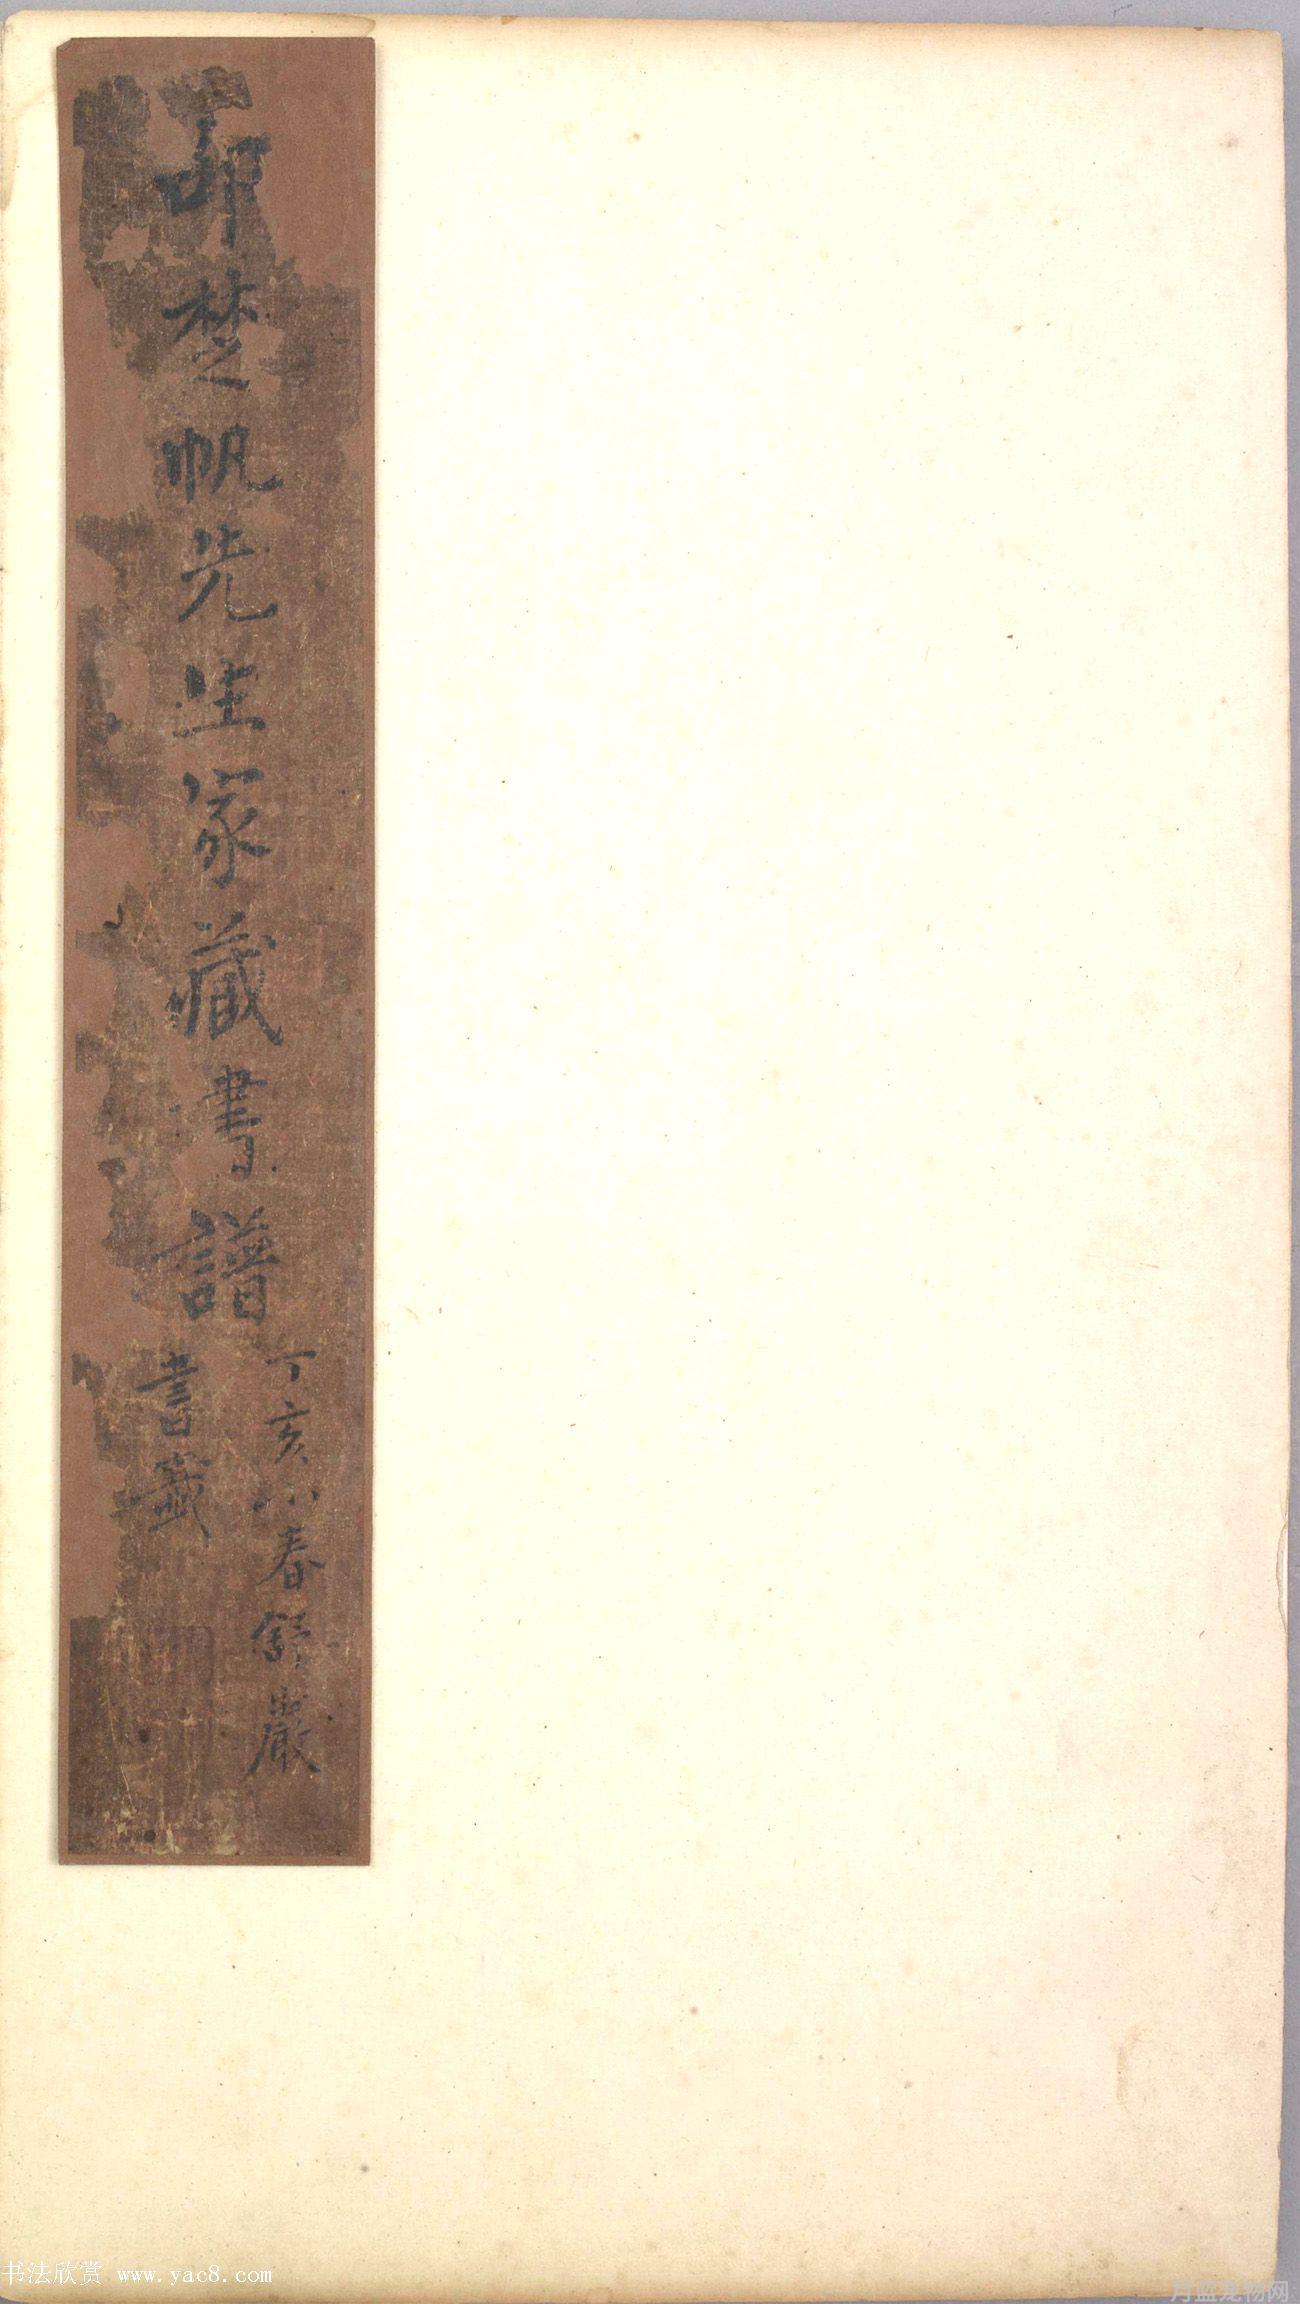 邵楚帆先生家藏書譜
丁亥小春舒嚴
書籤
书法欣赏 www.yac8.com
月监宠物网